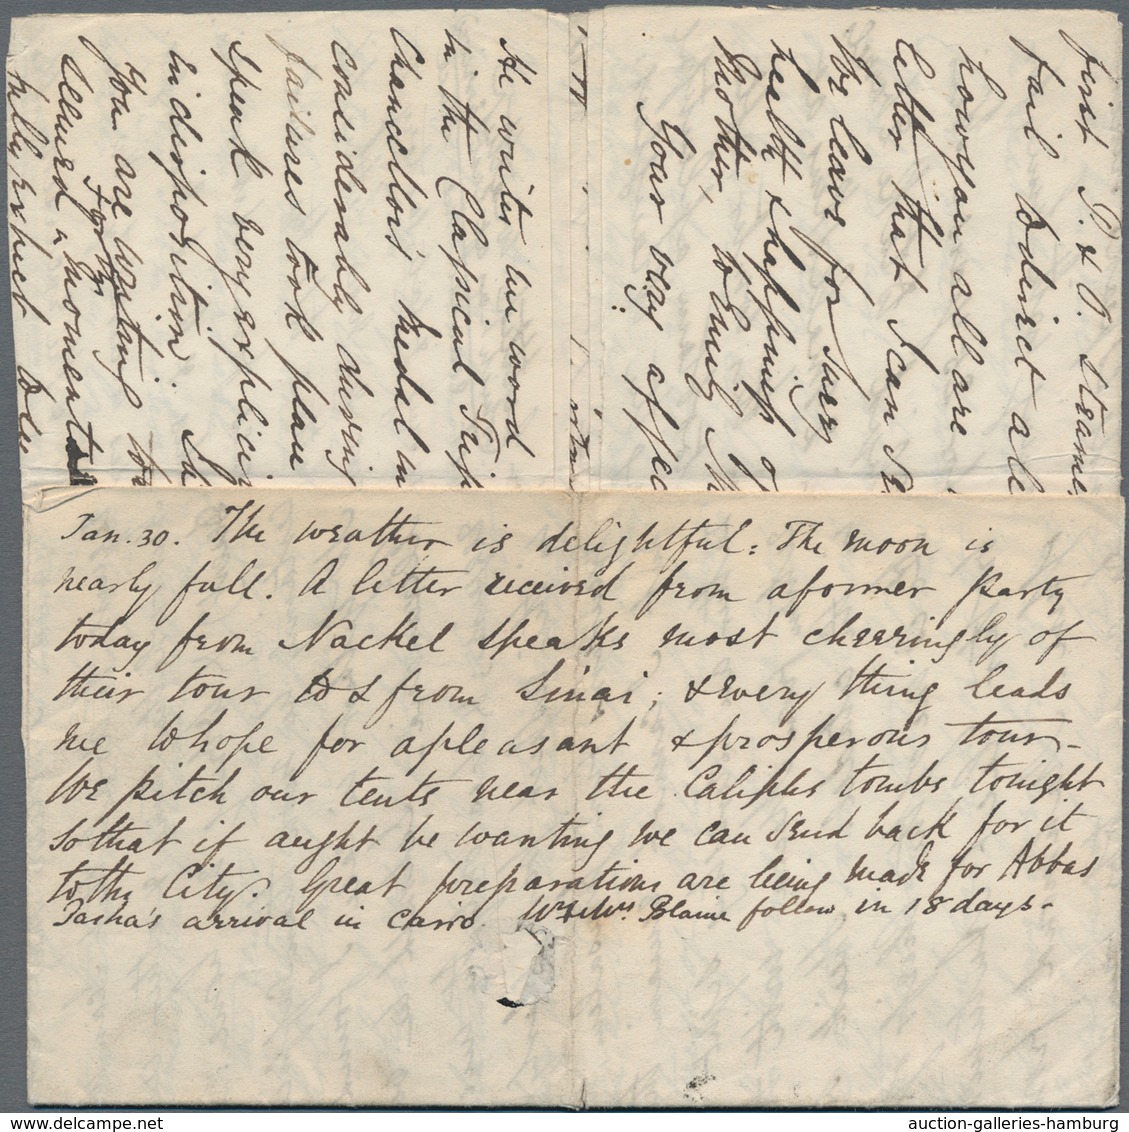 first P. & O. steamer
fail to direct all
how you all are
letter that I can
by leave for Suez
health & happiness
Mother, to Emily
Your very affec
He writes me word
in the Classical Trip
Chancellor's Medal
considerably
took place
speak very explicit
indisposition.
You are wanting to
allured
Jan. 30. The weather is delightful: The moon is
nearly full. A letter received from a former party
today from Nackel speaks most cheeringly of
their tour to & from Sinai; & every thing leads
me to hope for a pleasant & prosperous tour -
We pitch our tents near the Caliphs tombs tonight
so that if aught be wanting we can send back for it
to the City. Great preparations are being made for Abbas
Pasha's arrival in Cairo. Mr & Mrs Blaine follow in 18 days -
auction-galleries-hamburg